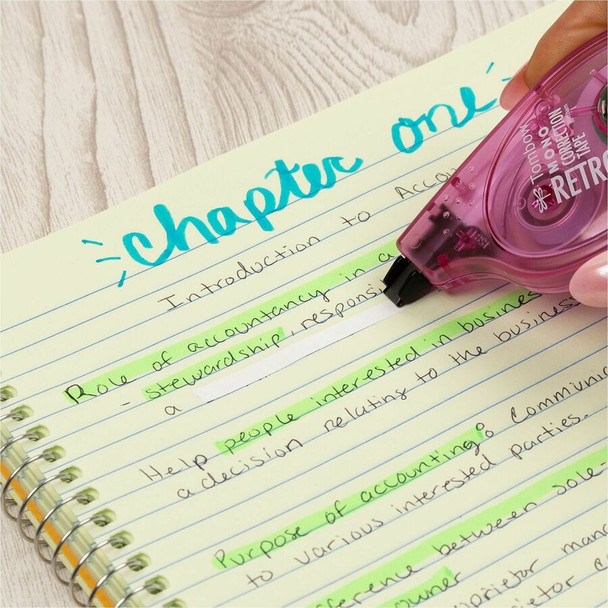 chapter one
Introduction to Acco
Role of accountancy in a
- stewardship, responsi
a
Help people interested in busines
a decision relating to the business
Purpose of accounting: Communic
to various interested parties.
fference between sole-
prietor man
owner
Tombow
MONO
CORRECTION
TAPE
RETRO